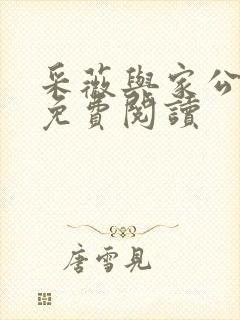 采薇與家公
免費閱讀
唐雪見